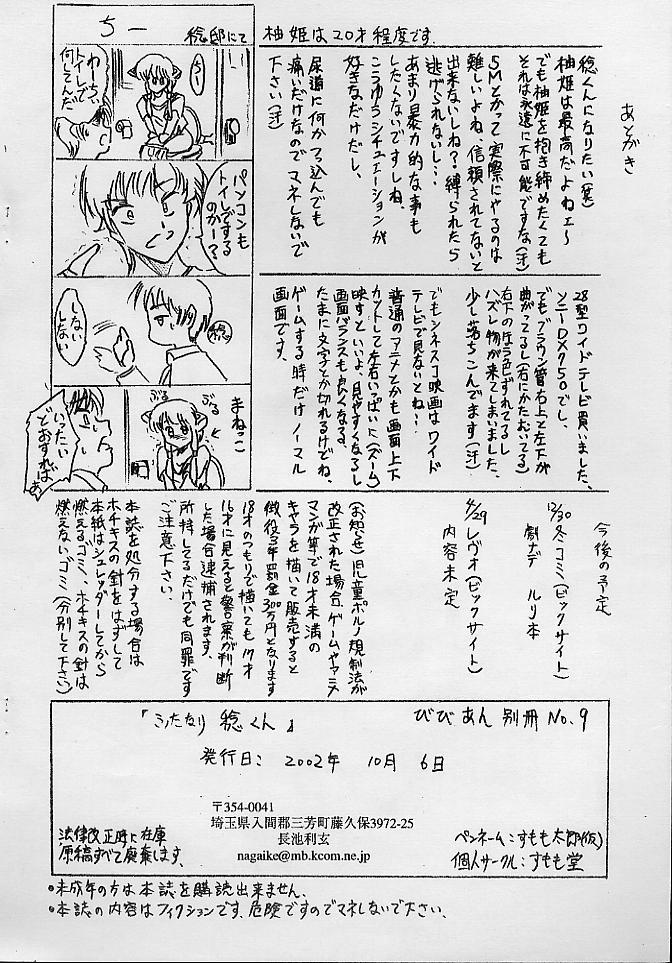 あとがき
柚姫は20才程度です。
稔くんになりたい(爆)
柚姫は最高だよねェ〜
でも柚姫を抱き締めたくても
それは永遠に不可能ですな(汗)
SMとかって実際にやるのは
難しいよね、信頼されてないと
出来ないしね？縛られたら
逃げられないし…
あまり暴力的な事も
したくないですしね、
こうゆうシチュエーションが
好きなだけだし、
尿道に何かつっ込んでも
痛いだけなのでマネしないで
下さい(汗)
28型ワイドテレビ買いました、
ソニーDX750でし、
でもブラウン管右上と左下が
曲がってるし(右にかたむいてる)
右下の片ラ色ずれてるし
ハズレ物が来てしまいました、
少し落ちこんでます(汗)
でもシネスコ映画はワイド
テレビで見ないとね…
普通のアニメとかも画面上下
カットして左右いっぱいに(ズーム)
映すといいよ、見やすくなるし
画面バランスも良くなる、
たまに文字とか切れるけどね、
ゲームする時だけノーマル
画面です、
今後の予定
12/30冬コミ(ビックサイト)
劇ナデ ルリ本
4/29レヴォ(ビックサイト)
内容未定
(お知らせ)児童ポルノ規制法が
改正された場合、ゲームやアニメ
マンガ等で18才未満の
キャラを描いて販売すると
懲役3年罰金300万円となります
18才のつもりで描いても17才
16才に見えると警察が判断
した場合逮捕されます、
所持してるだけでも同罪です
ご注意下さい、
本誌を処分する場合は
ホチキスの針をはずして
本紙はシュレッダーしてから
燃えるゴミ、ホチキスの針は
燃えないゴミ(分別して下さい)
ちー
稔邸にて
ちー
わーちぃ
トイレで
何してんだ
パソコンも
トイレするのかー？
稔
しない
しない
まねっこ
ぶる
ぶる
いったい
どおすれば
ぁ
「ふたなり 稔くん」
びびあん 別冊 No.9
発行日： 2002年 10月 6日
〒354-0041
埼玉県入間郡三芳町藤久保3972-25
長池利玄
nagaike@mb.kcom.ne.jp
法律改正時に在庫
原稿すべて廃棄します、
ペンネーム：すもも太郎(仮)
個人サークル：すもも堂
•未成年の方は本誌を購読出来ません、
•本誌の内容はフィクションです、危険ですのでマネしないで下さい、